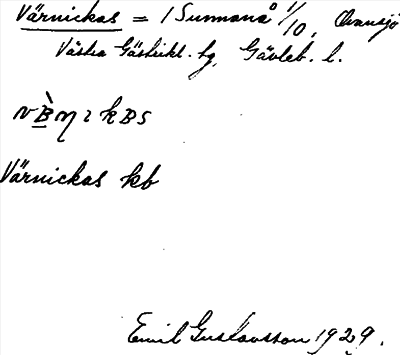 Värnickas = 1 Sunnanå 1/10, Ovansjö
Västra Gästrikl. tg, Gävleb. l.
Värnickas kb
Emil Gustavsson 1929.